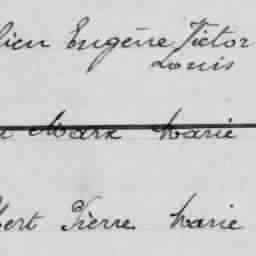 lien Eugène Victor
Louis
Marx Marie
bert Pierre Marie